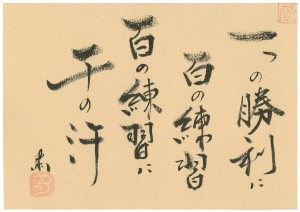 一つの勝利に
百の練習
百の練習に
千の汗